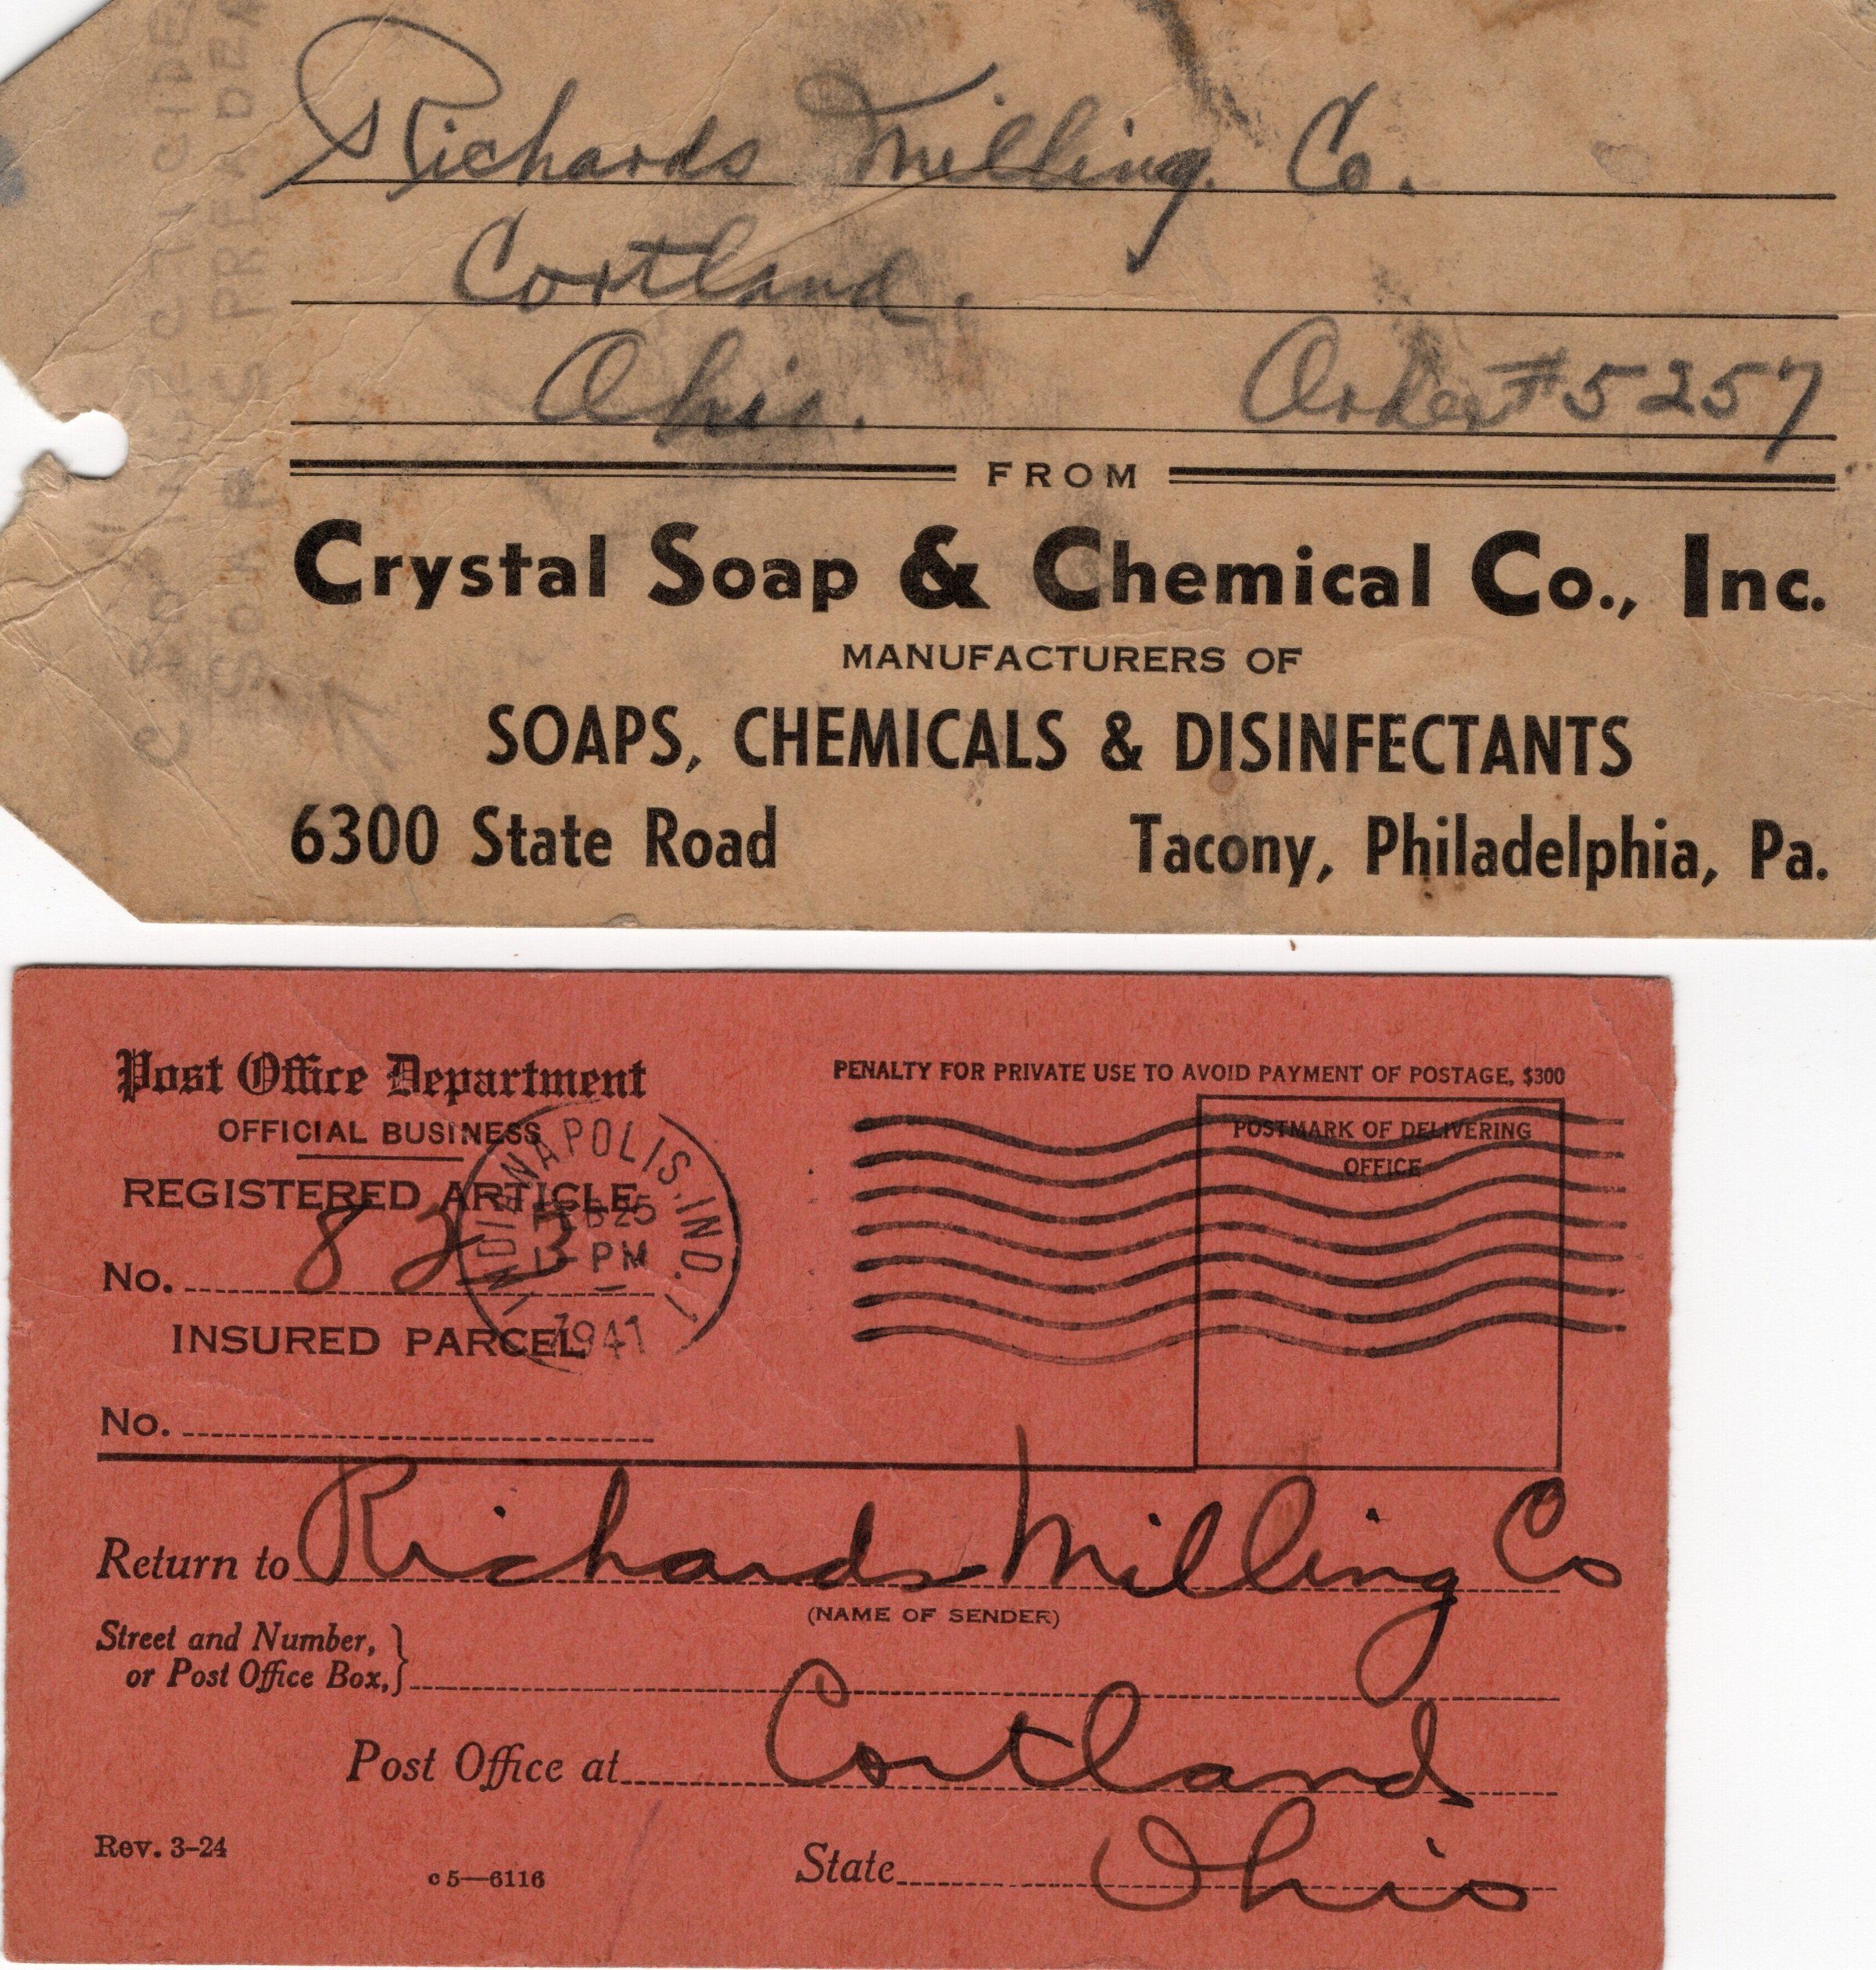 Richards Milling. Co.
Cortland.
Ohio. Order #5257
FROM
Crystal Soap & Chemical Co., Inc.
MANUFACTURERS OF
SOAPS, CHEMICALS & DISINFECTANTS
6300 State Road Tacony, Philadelphia, Pa.
Post Office Department
OFFICIAL BUSINESS
REGISTERED ARTICLE
No. 823
INSURED PARCEL
No.
INDIANAPOLIS, IND. 1
FEB 25
PM
1941
PENALTY FOR PRIVATE USE TO AVOID PAYMENT OF POSTAGE, $300
POSTMARK OF DELIVERING
OFFICE
Return to Richards Milling Co
(NAME OF SENDER)
Street and Number,
or Post Office Box,
Post Office at Cortland
State Ohio
Rev. 3-24
c5—6116